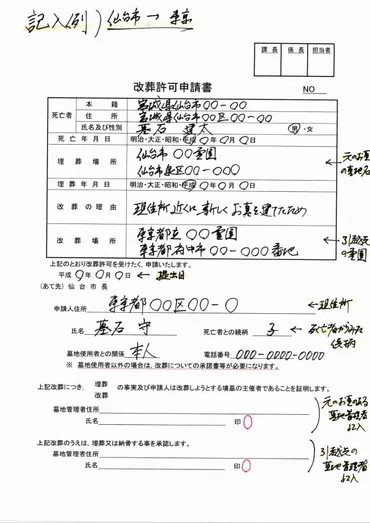 記入例) 仙台市→東京
課長 係長 担当者
改葬許可申請書
NO
死亡者
本籍 宮城県仙台市○○-○○
住所 宮城県仙台市○○区○○-○○
氏名及び性別 墓石 建太 男・女
死亡年月日 明治・大正・昭和・平成 ○年○月○日
埋葬場所 仙台市 ○○霊園
仙台市泉区○○-○○○
←元のお墓の墓地名
埋葬年月日 明治・大正・昭和・平成 ○年○月○日
改葬の理由 現住所近くに新しくお墓を建てたため
改葬場所 東京都立 ○○霊園
東京都府中市○○-○○○番地
←引越先の霊園
上記のとおり改葬許可を受けたく、申請いたします。
平成 ○年○月○日 ←提出日
(あて先) 仙台市長
申請人住所 東京都○○区○○-○ ←現住所
氏名 墓石 守 死亡者との続柄 子 ←死亡者からみた続柄
墓地使用者との関係 本人 電話番号 000-0000-0000
※ 墓地使用者以外の場合は、改葬についての承諾書等が必要になります。
上記改葬につき、埋葬 改葬 の事実及び申請人は改葬しようとする墳墓の主催者であることを証明します。
墓地管理者住所
氏名 印
元のお墓のある墓地管理者記入
上記改葬のうえは、埋葬又は納骨する事を承諾します。
墓地管理者住所
氏名 印
引越先の墓地管理者記入